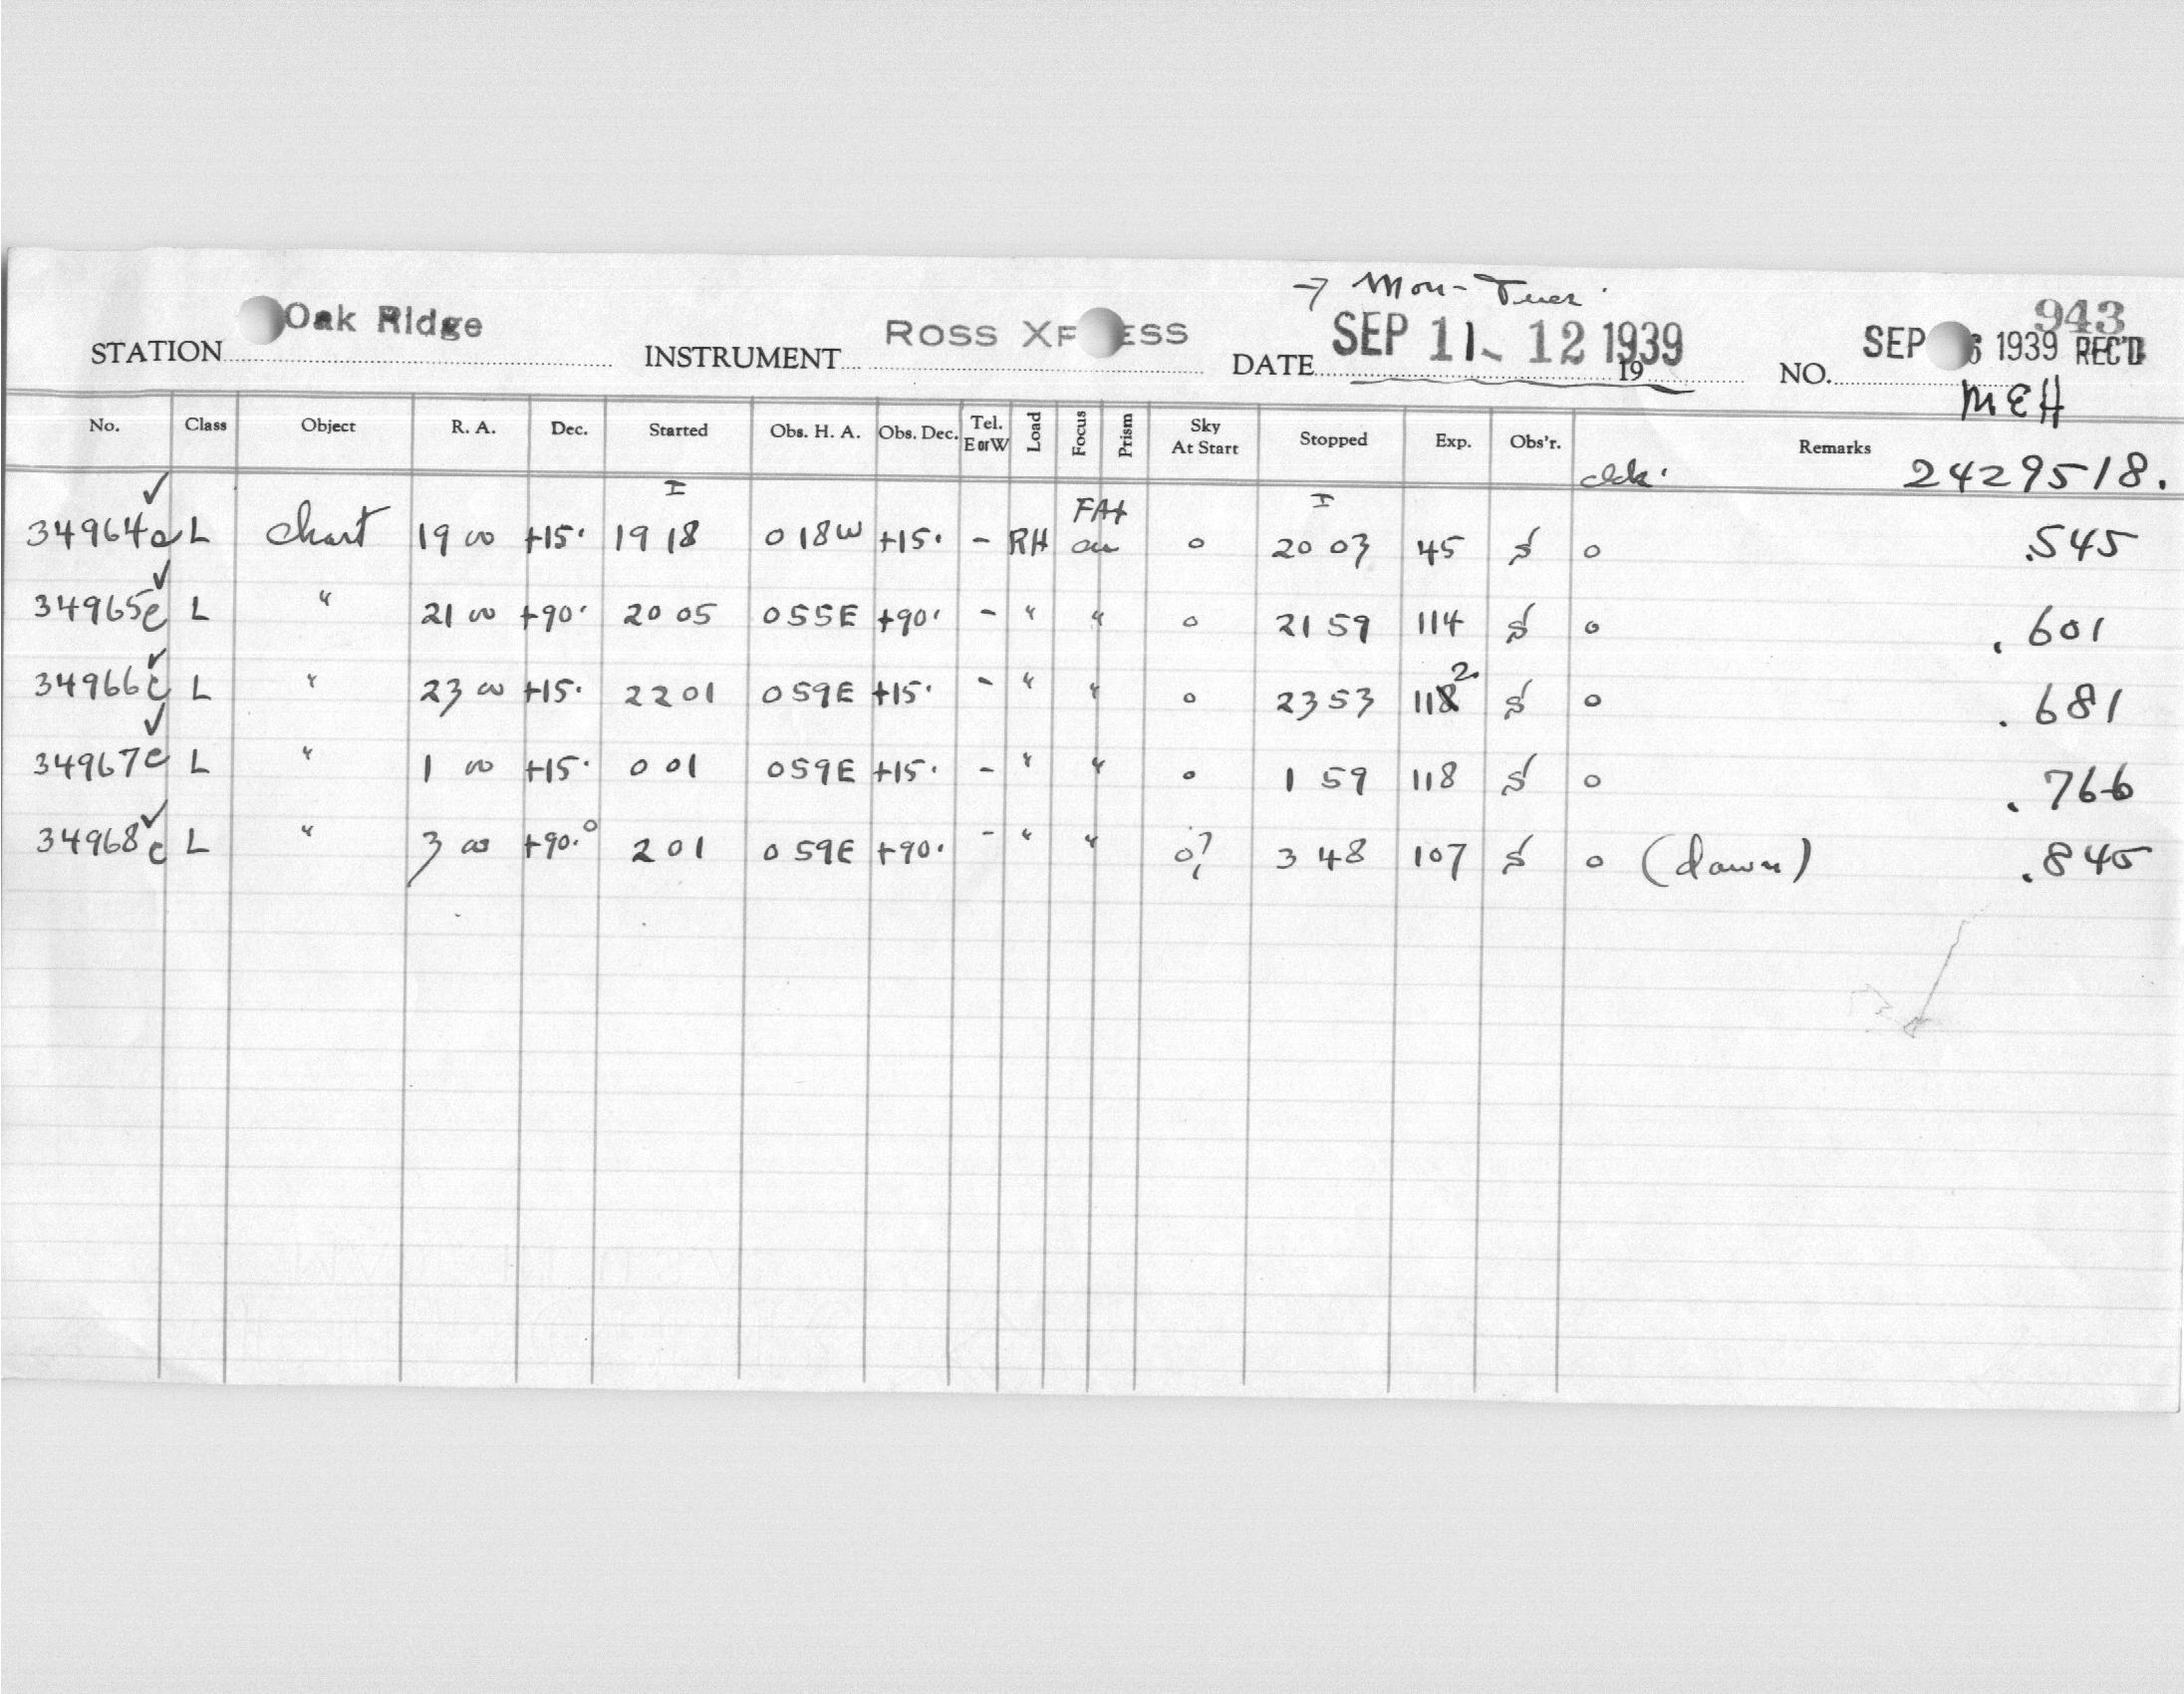 → Mon-Tues.
943
STATION Oak Ridge INSTRUMENT ROSS XPRESS DATE SEP 11-12 1939 19 NO. SEP 6 1939 REC'D
MEH
No. Class Object R. A. Dec. Started Obs. H. A. Obs. Dec. Tel. E or W Load Focus Prism Sky At Start Stopped Exp. Obs'r. Remarks
clck. 2429518.
I I
34964 L chart 19 00 +15. 19 18 0 18W +15. - RH FA+ on o 20 03 45 S o .545
34965c L " 21 00 +90. 20 05 0 55E +90. - " " o 21 59 114 S o .601
34966c L " 23 00 +15. 22 01 0 59E +15. - " " o 23 53 112 S o .681
34967c L " 1 00 +15. 0 01 0 59E +15. - " " o 1 59 118 S o .766
34968c L " 3 00 +90.° 2 01 0 59E +90. - " " o? 3 48 107 S o (dawn) .845